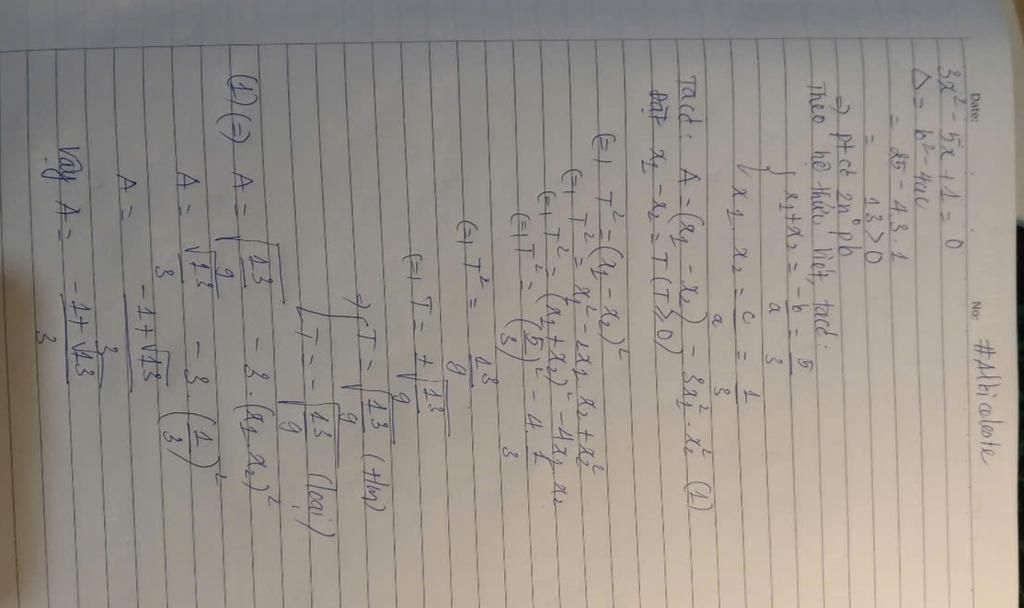 Date: No: #Albicaleste
3x² - 5x + 1 = 0
Δ = b² - 4ac
= 25 - 4.3.1
= 13 > 0
⇒ pt có 2n° pb
Theo hệ thức Viét, tacó:
{ x₁ + x₂ = -b/a = 5/3
x₁ . x₂ = c/a = 1/3
Tacó: A = (x₁ - x₂) - 3x₁² . x₂² (1)
Đặt x₁ - x₂ = T (T ≥ 0)
(=) T² = (x₁ - x₂)²
(=) T² = x₁² - 2x₁.x₂ + x₂²
(=) T² = (x₁ + x₂)² - 4x₁.x₂
(=) T² = (5/3)² - 4.1/3
(=) T² = 13/9
(=) T = ±√13/9
⇒ [ T = √13/9 (t/m)
T = -√13/9 (loại)
(1) (=) A = √13/9 - 3.(x₁.x₂)²
A = √13/3 - 3.(1/3)²
A = -1+√13/3
Vậy A = -1+√13/3